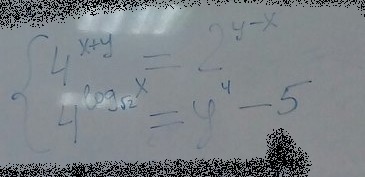 4^{x+y} = 2^{y-x}
4^{log_{√2} x} = y^4 - 5